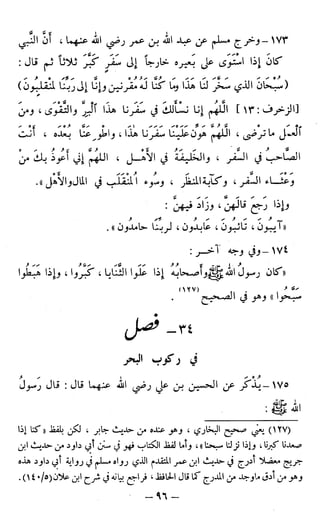 ١٧٣ـ وخرج مسلم عن عبد الله بن عمر رضي الله عنهما، أنَّ النَّبي
كانَ إذا استَوَى على بَعيره خارجاً إلى سَفَرٍ كَبَّرَ ثلاثاً ثم قال:
(سُبْحَانَ الذي سَخَّرَ لنَا هذَا ومَا كُنَّا لَهُ مُقْرِنينَ وإنَّا إلى ربِّنَا لَمُنقَلِبُونَ)
[الزخرف: ١٣] اللَّهُمَّ إنَّا نسألُكَ في سَفَرِنا هذَا البِرَّ والتَّقْوَى، ومِنَ
العَمَلِ مَا تَرضَى، اللَّهُمَّ هَوِّنْ عَلَيْنَا سَفَرَنَا هذَا، واطْوِ عَنَّا بُعْدَه، أَنْتَ
الصَّاحبُ في السَّفَرِ، والخَليفَةُ في الأهْلِ، اللَّهمَّ إنِّي أَعُوذُ بكَ مِنْ
وَعْثَاءِ السَّفَرِ، وكآبَةِ المَنْظَرِ، وسُوءِ المُنْقَلَبِ في المَالِ والأهْلِ».
وإذا رَجَعَ قالَهُنَّ، وزَادَ فيهنَّ:
«آيبُونَ، تَائبُونَ، عَابدُونَ، لربِّنَا حامدُونَ».
١٧٤ـ وفي وجه آخر:
«كانَ رسولُ اللهِ ﷺ وأصحابُهُ إذا عَلَوا الثَّنَايا، كَبَّرُوا، وإذا هَبَطُوا
سَبَّحُوا» وهو في الصحيح(١٢٧).
٣٤ـ فصل
في ركوب البحر
١٧٥ـ يُذْكَر عن الحسين بن علي رضي الله عنهما قال: قال رَسولُ
الله ﷺ:
(١٢٧) يعني صحيح البخاري، وهو عنده من حديث جابر، لكن بلفظ «كنا إذا
صعدنا كبرنا، وإذا نزلنا سبحنا»، وأما لفظ الكتاب فهو في سنن أبي داود من حديث ابن
جريج معضلا أدرج في حديث ابن عمر المتقدم الذي رواه مسلم في رواية أبي داود هذه
وهو من أدق ماوجد من المدرج كما قال الحافظ، فراجع بيانه في شرح ابن علان (٥/١٤٠).
ـ ٩٦ ـ